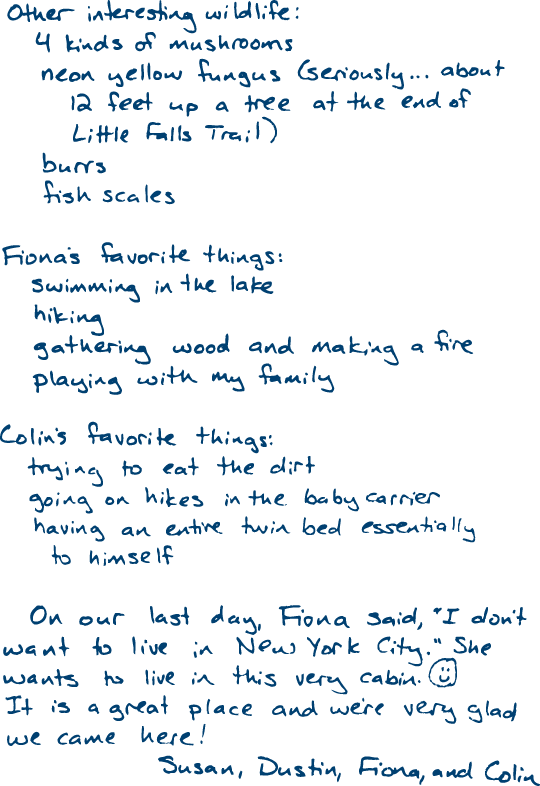 Other interesting wildlife:
4 kinds of mushrooms
neon yellow fungus (seriously... about
12 feet up a tree at the end of
Little Falls Trail)
burrs
fish scales
Fiona's favorite things:
swimming in the lake
hiking
gathering wood and making a fire
playing with my family
Colin's favorite things:
trying to eat the dirt
going on hikes in the baby carrier
having an entire twin bed essentially
to himself
On our last day, Fiona said, "I don't
want to live in New York City." She
wants to live in this very cabin. ☺
It is a great place and we're very glad
we came here!
Susan, Dustin, Fiona, and Colin